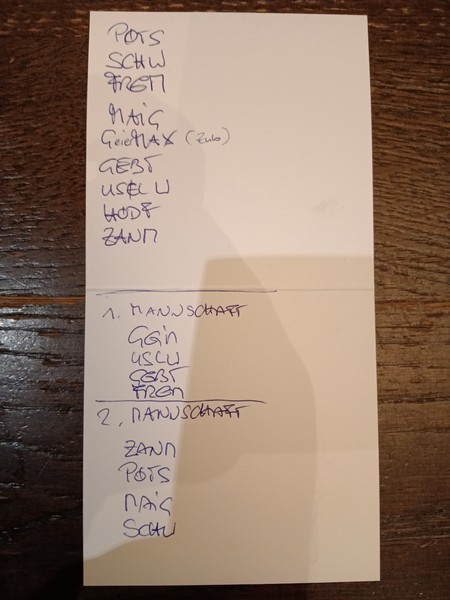 POTS
SCHW
FREM
MAIG
GeieMAX (Zulo)
GEBT
USEL W
HODF
ZANM
1. MANNSCHAFT
GEiM
USLW
GEBT
FREM
2. MANNSCHAFT
ZANM
POTS
MAIG
SCHW